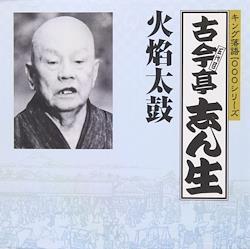 キング落語一〇〇〇シリーズ
五代目
古今亭志ん生
火焰太鼓